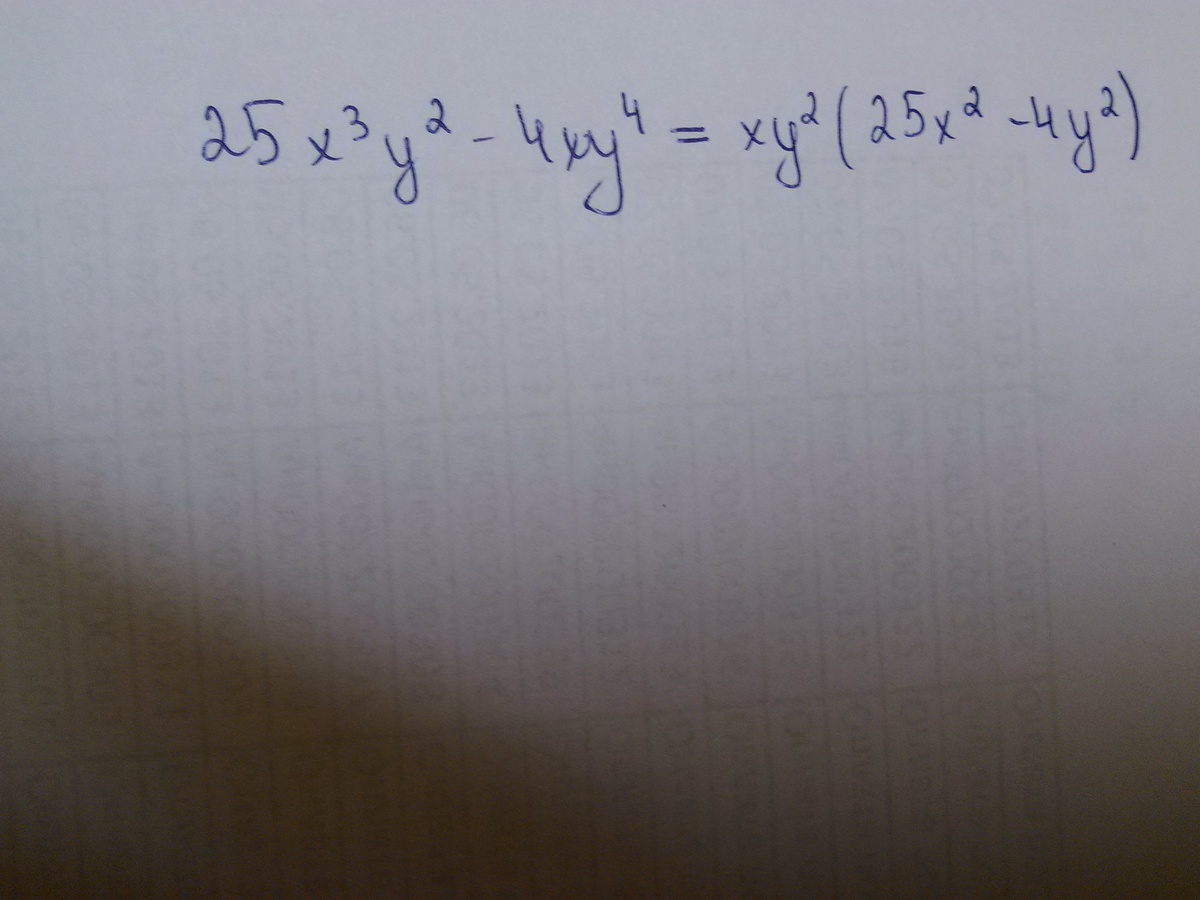 25x³y² - 4xy⁴ = xy²(25x² - 4y²)